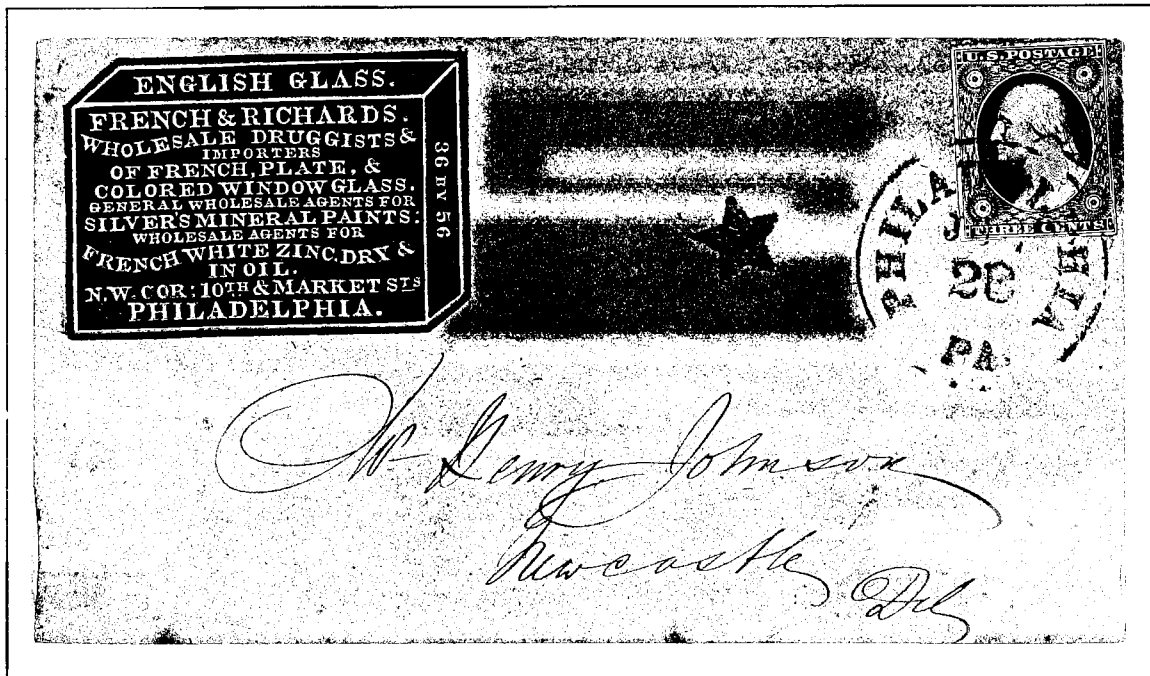 ENGLISH GLASS.
FRENCH & RICHARDS.
WHOLESALE DRUGGISTS &
IMPORTERS
OF FRENCH, PLATE, &
COLORED WINDOW GLASS.
GENERAL WHOLESALE AGENTS FOR
SILVER'S MINERAL PAINTS:
WHOLESALE AGENTS FOR
FRENCH WHITE ZINC, DRY &
IN OIL.
N.W. COR: 10TH & MARKET STS
PHILADELPHIA.
36 BY 56
U.S. POSTAGE
THREE CENTS
PHILA HIA
28
PA
Mr Henry Johnson
Newcastle
Del